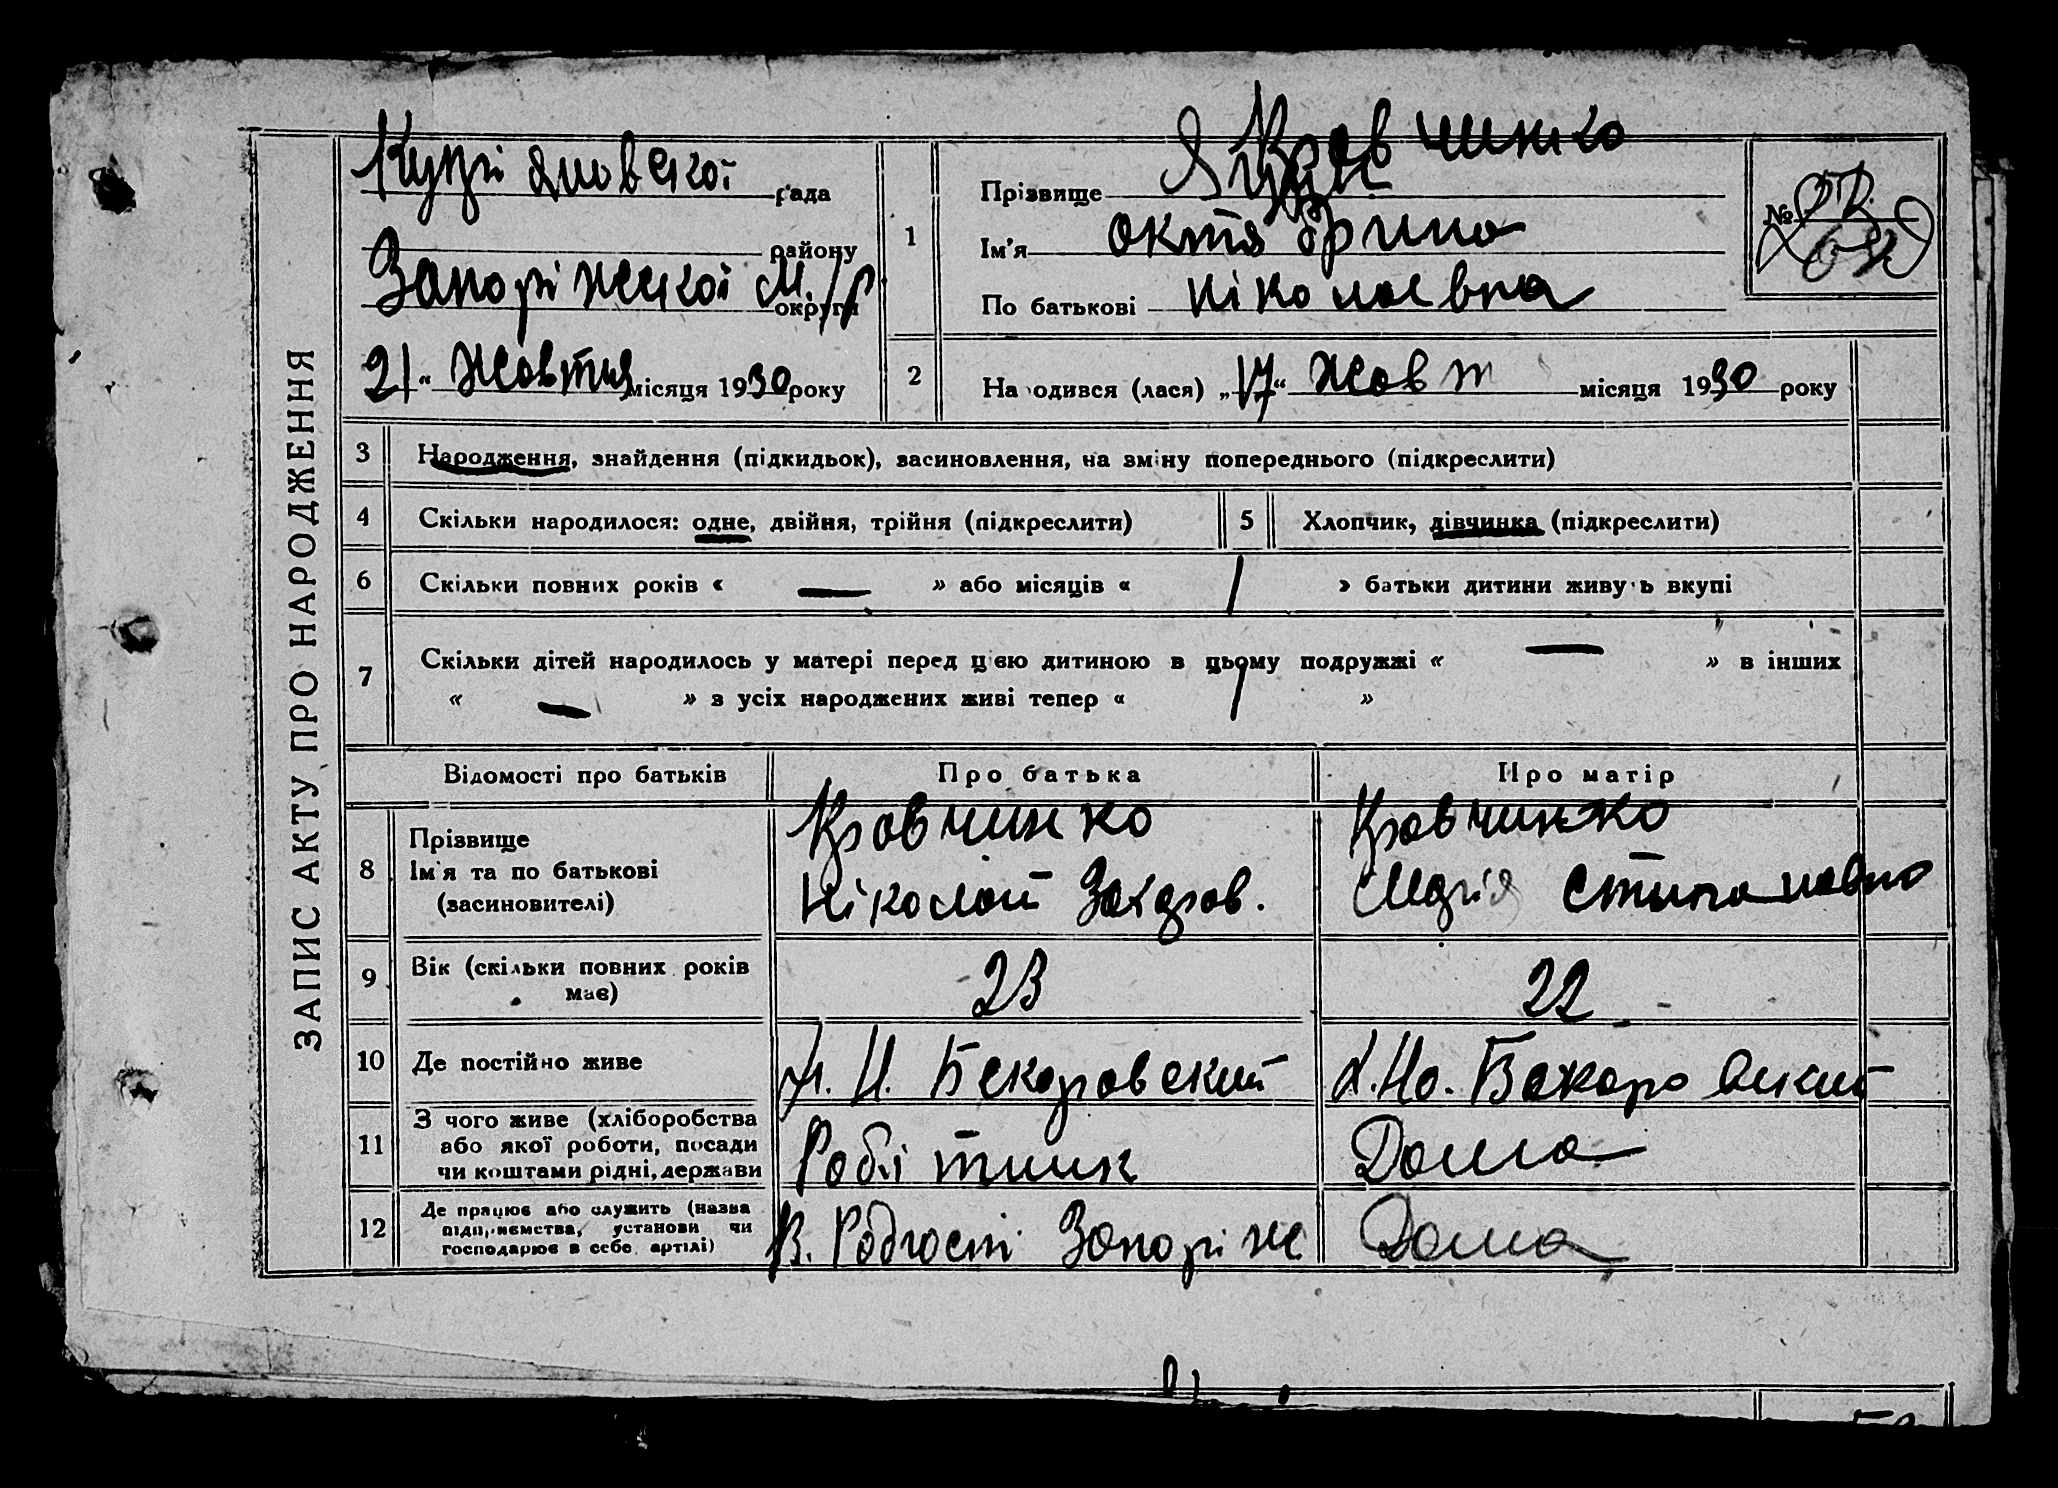 ЗАПИС АКТУ ПРО НАРОДЖЕННЯ
Купріяновської рада
району
Запоріжської М./р округи
21" Жовтня місяця 1930 року
1
Прізвище Кравчинко
Ім'я октябрина
По батькові Ніколаевна
№
2
Народився (лася) „17" Жовт місяця 1930 року
3 Народження, знайдення (підкидьок), засиновлення, на зміну попереднього (підкреслити)
4 Скільки народилося: одне, двійня, трійня (підкреслити)
5 Хлопчик, дівчинка (підкреслити)
6 Скільки повних років « — » або місяців « / » батьки дитини живуть вкупі
7 Скільки дітей народилось у матері перед цією дитиною в цьому подружжі « — » в інших
« — » з усіх народжених живі тепер « / »
Відомості про батьків Про батька Про матір
8 Прізвище
Ім'я та по батькові
(засиновителі)
Кравчинко
Ніколай Захаров.
Кравчинко
Марія Стипановна
9 Вік (скільки повних років
має)
23 22
10 Де постійно живе
Х. Н. Бекаровский Х. Но. Бекаровский
11 З чого живе (хліборобства
або якої роботи, посади
чи коштами рідні, держави
Робітник Дома
12 Де працює або служить (назва
підприємства, установи чи
господарює в себе, артілі)
В. Запоріж Дома